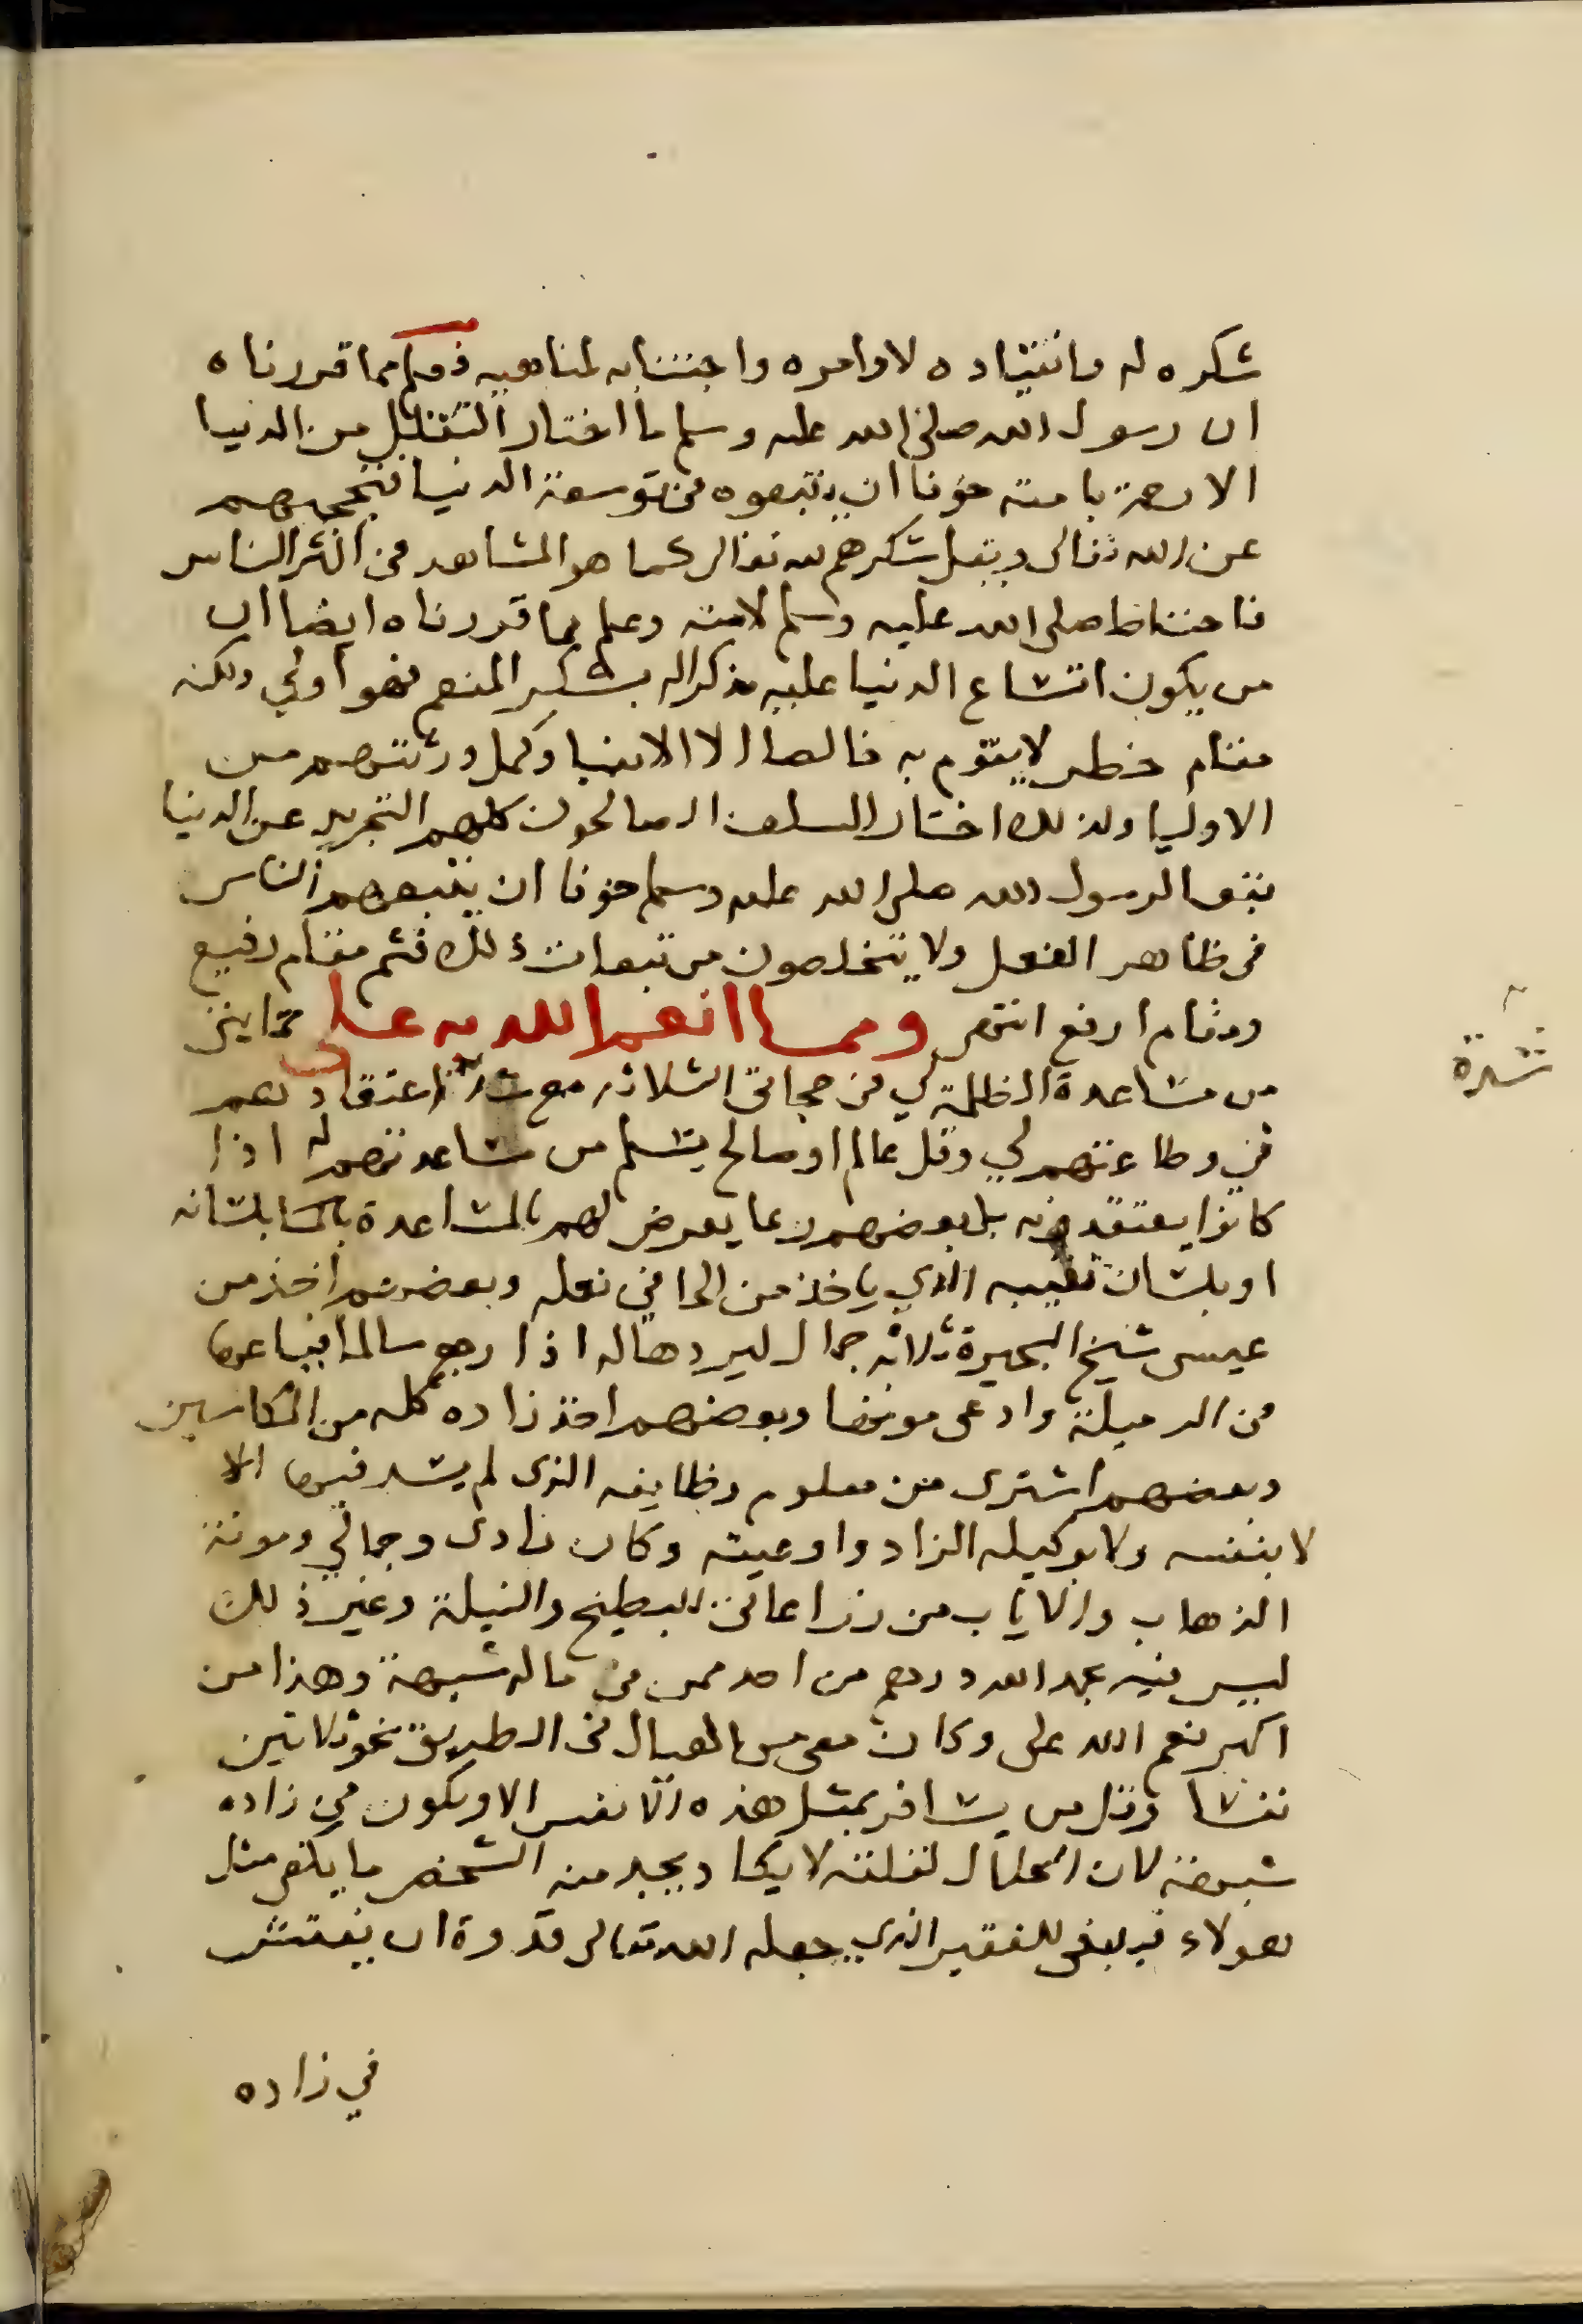 شكره له وانقياده لاوامره واجتنابه لمناهيه فعلم مما قررناه
ان رسول الله صلى الله عليه وسلم ما اختار التقلل من الدنيا
الا رحمة بامته خوفا ان يتبعوه في توسعة الدنيا فتحجبهم
عن الله تعالى ويقل شكرهم لله تعالى كما هو المشاهد في اكثر الناس
فاحتاط صلى الله عليه وسلم لامته وعلم مما قررناه ايضا ان
من يكون اتساع الدنيا عليه مذكرا له بشكر المنعم فهو اولي ولكنه
مقام خطر لا يقوم به خالصا الا الانبيا وكمل ورثتهم من
الاوليا ولذلك اختار السلف الصالحون كلهم التجريد عن الدنيا
تبعا لرسول الله صلى الله عليه وسلم خوفا ان يتبعهم الناس
في ظاهر الفعل ولا يتخلصون من تبعات ذلك فثم مقام رفيع
ومقام ارفع انتهى ومما انعم الله به علي حمايتي
من مساعدة الظلمة لي في حجاتي الثلاثة مع شدة اعتقادهم
في وطاعتهم لي وقل عالم او صالح يسلم من مساعدتهم له اذا
كانوا يعتقدونه بل بعضهم ربما يعرض لهم بالمساعدة بلسانه
او بلسان نقيبه الذي ياخذ من الحافي نعله وبعضهم اخذ من
عيسى شيخ البحيرة ثلاثة جمال ليردها له اذا رجع سالما فباعها
في الرميلة وادعى موتها وبعضهم اخذ زاده كله من المكاسين
وبعضهم اشترى من معلوم وظايفه الذي لم يسد فيها الا
لا بنفسه ولا بوكيله الزاد واوعيته وكان زادي وجمالي ومونة
الذهاب والاياب من زراعاتي البطيخ والنيلة وغير ذلك
ليس فيه بحمد الله درهم من احد ممن في ماله شبهة وهذا من
اكبر نعم الله على وكان معي من العيال في الطريق نحو ثلاثين
نفسا وقل من يسافر بمثل هذه الانفس الا ويكون في زاده
شبهة لان الحلال لقلته لا يكاد يجد منه الشخص ما يكفي مثل
هولاء فينبغي للفقير الذي جعله الله تعالى قدوة ان يفتش
في زاده
شدة